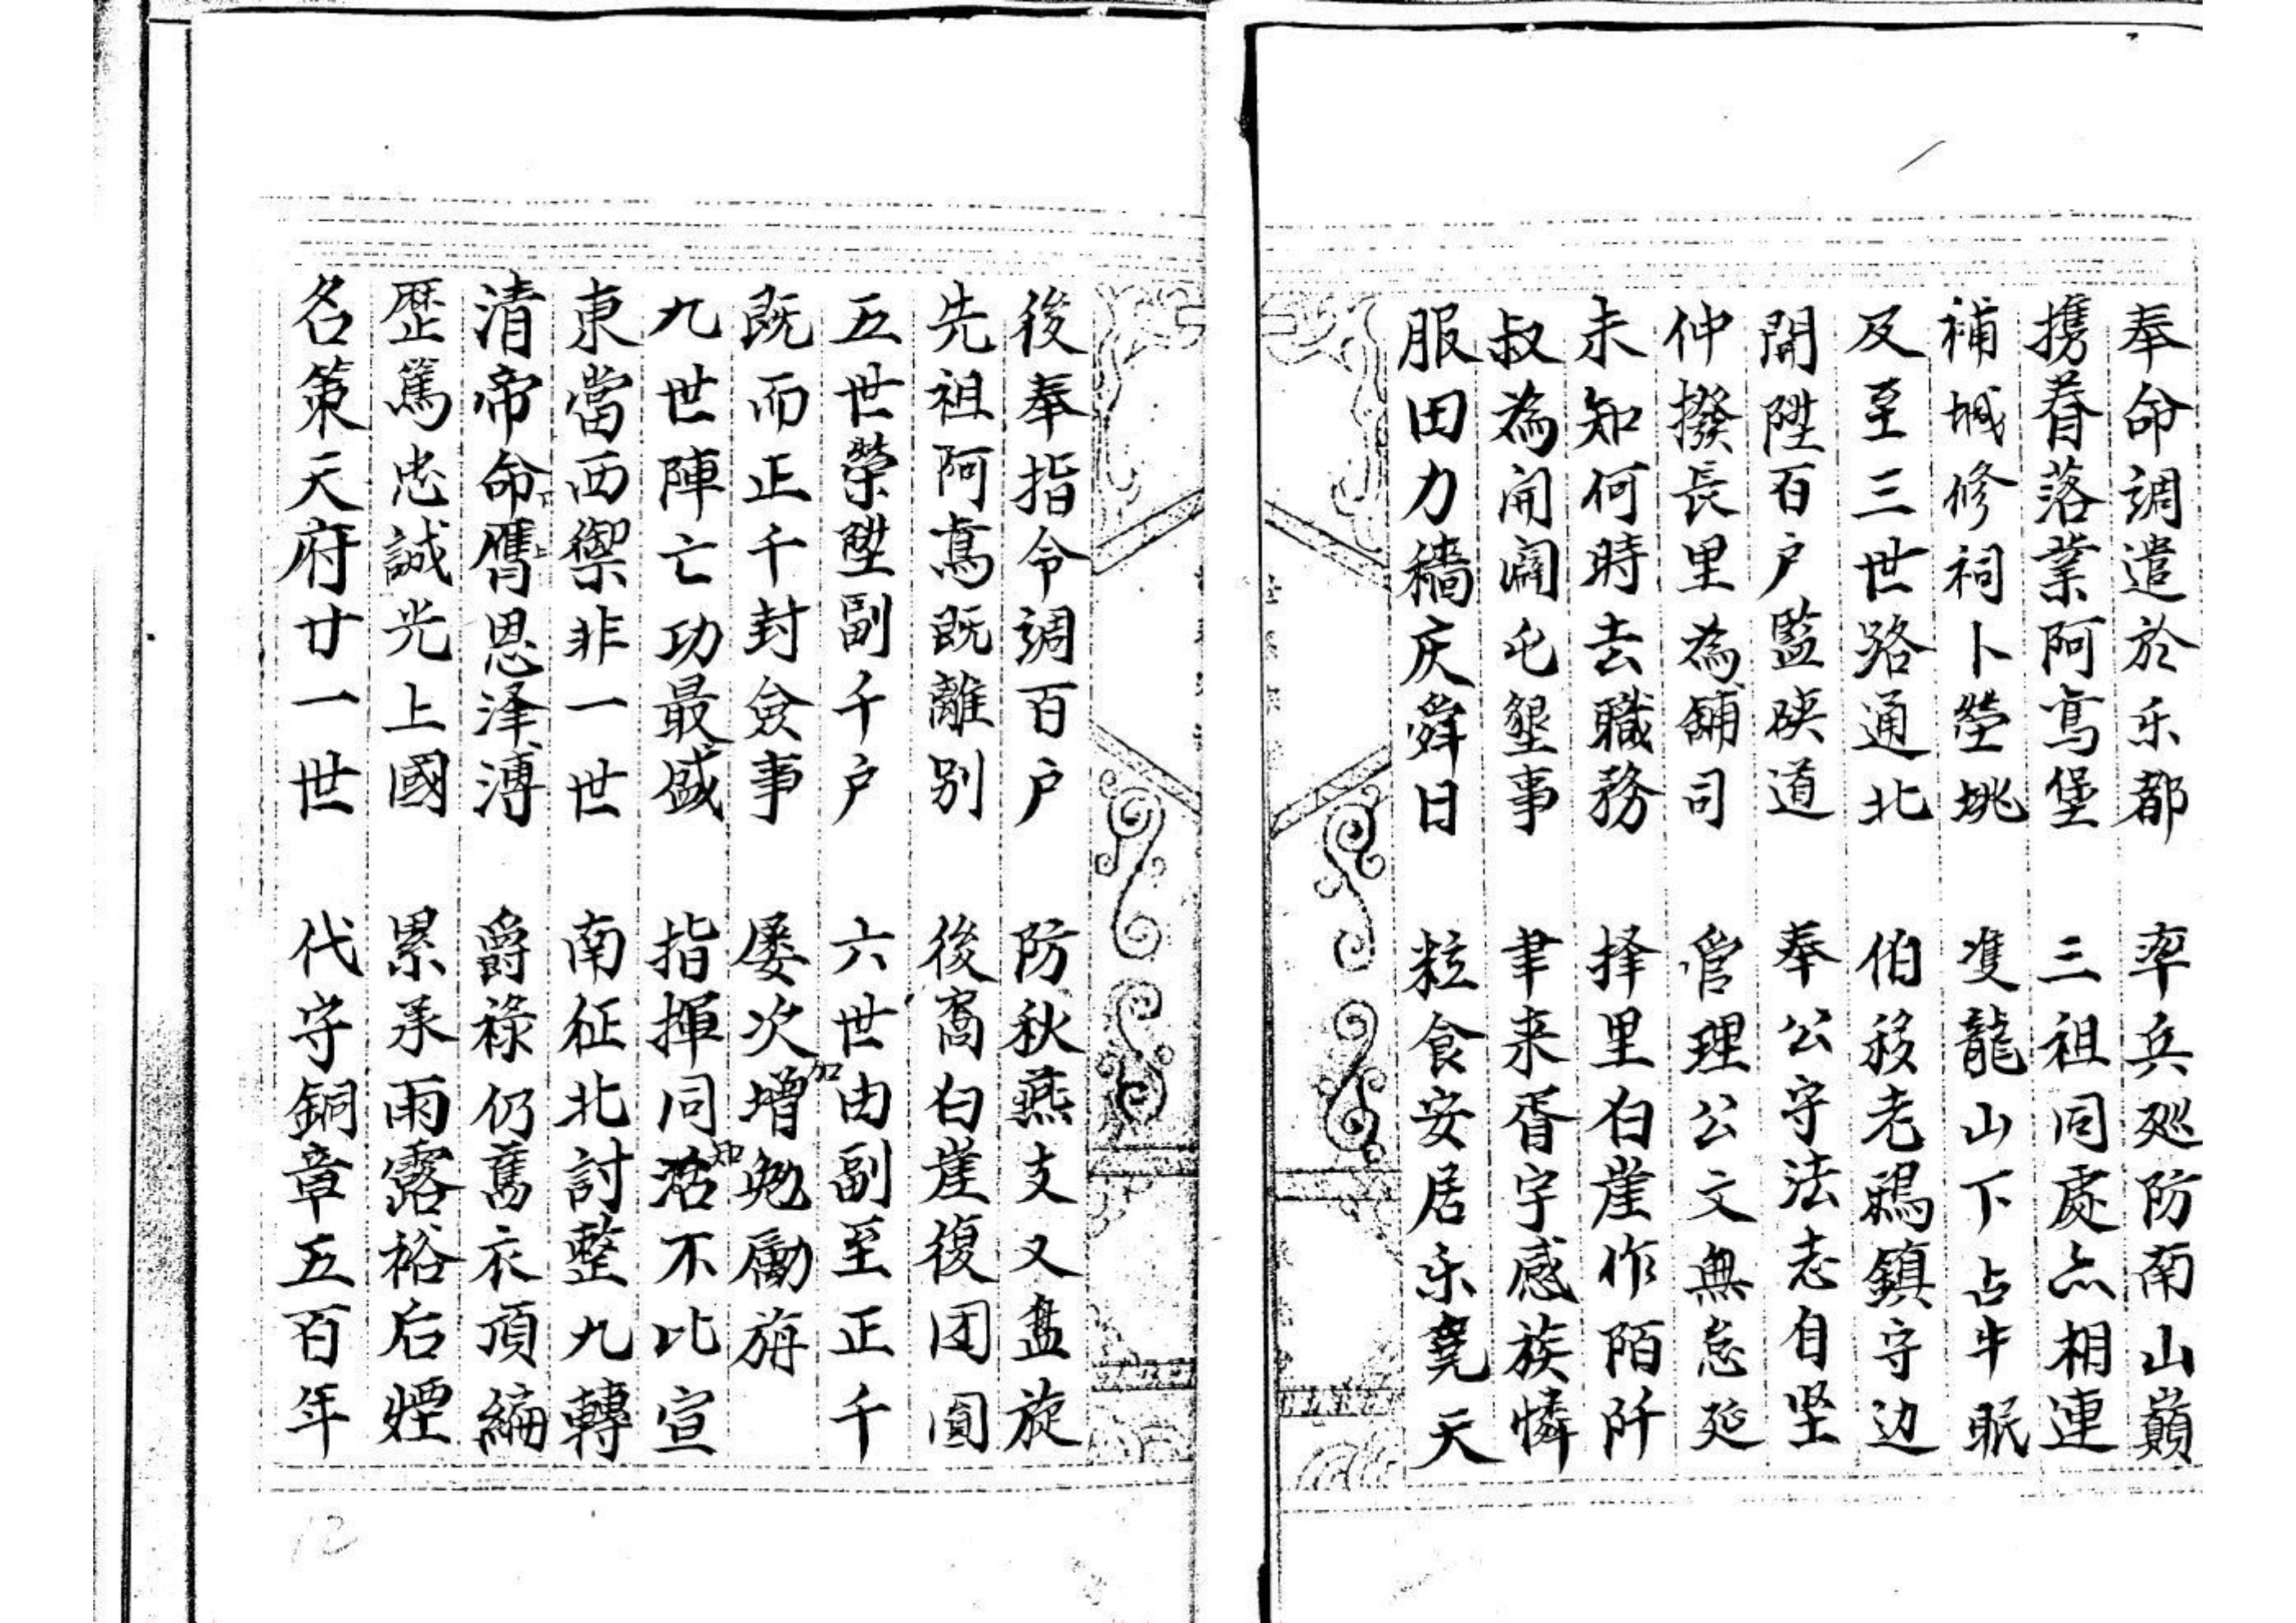 奉命調遣於乐都　率兵廵防南山巔
携眷落業阿鸾堡　三祖同處亦相連
補城修祠卜塋垗　隻龍山下占牛眠
及至三世路通北　伯移老鴉鎮守边
開陞百户監硤道　奉公守法志自坚
仲撥長里為舖司　管理公文無怠延
未知何時去職務　择里白崖作陌阡
叔為開闢屯墾事　聿来胥宇感族憐
服田力穡庆舜日　粒食安居乐堯天
後奉指令調百户　防秋燕支又盘旋
先祖阿鸾既離别　後裔白崖復团圓
五世榮陞副千户　六世由副至正千
既而正千封僉事　屡次增加勉勵旃
九世陣亡功最盛　指揮同知不比宣
東當西禦非一世　南征北討整九轉
清帝命下膺上恩泽溥　爵祿仍舊衣頂編
歷篤忠誠光上國　累承雨露裕后煙
名策天府廿一世　代守銅章五百年
12